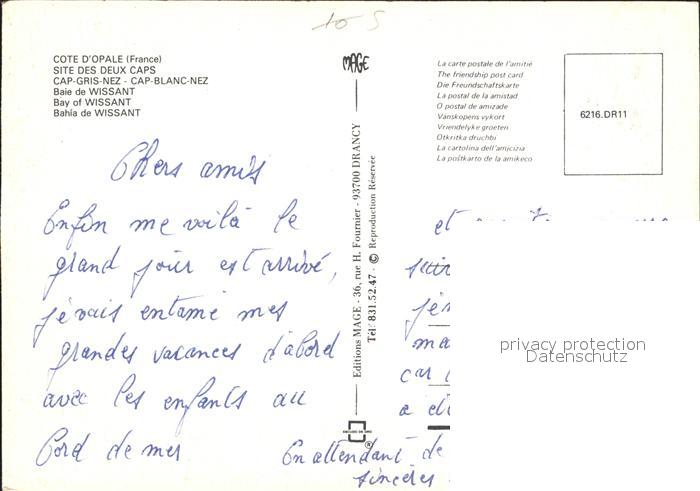 10 5
COTE D'OPALE (France)
SITE DES DEUX CAPS
CAP-GRIS-NEZ - CAP-BLANC-NEZ
Baie de WISSANT
Bay of WISSANT
Bahía de WISSANT
MAGE
La carte postale de l'amitié
The friendship post card
Die Freundschaftskarte
La postal de la amistad
O postal de amizade
Vänskopens vykort
Vriendelyke groeten
Otkritka druchbi
La cartolina dell'amicizia
La poŝtkarto de la amikeco
6216.DR11
Editions MAGE - 36, rue H. Fournier - 93700 DRANCY
Tél. 831.52.47 - © Reproduction Réservée
Chers amis
Enfin me voilà le
grand jour est arrivé,
je vais entamé mes
grandes vacances d'abord
avec les enfants au
bord de mer
En attendant de
sincères
et
ma
car
a
privacy protection
Datenschutz